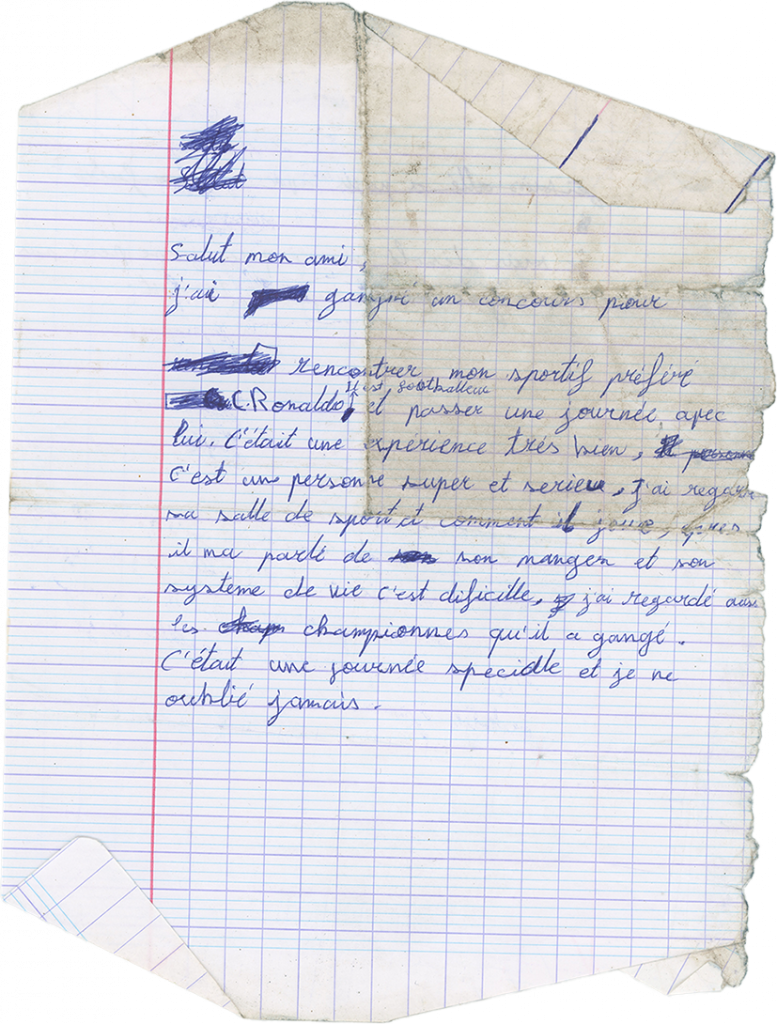 Salut mon ami,
j'ai gangné un concours pour
rencontrer mon sportif préféré
il est footballeur
C.Ronaldo, et passer une journée avec
lui. C'était une experience trés bien,
c'est un personne super et serieu, j'ai regardé
sa salle de sport et comment il joue, apres
il ma parlé de son manger et son
systeme de vie c'est dificille, j'ai regardé aussi
les championnes qu'il a gangé.
C'était une journée specialle et je ne
oublié jamais.